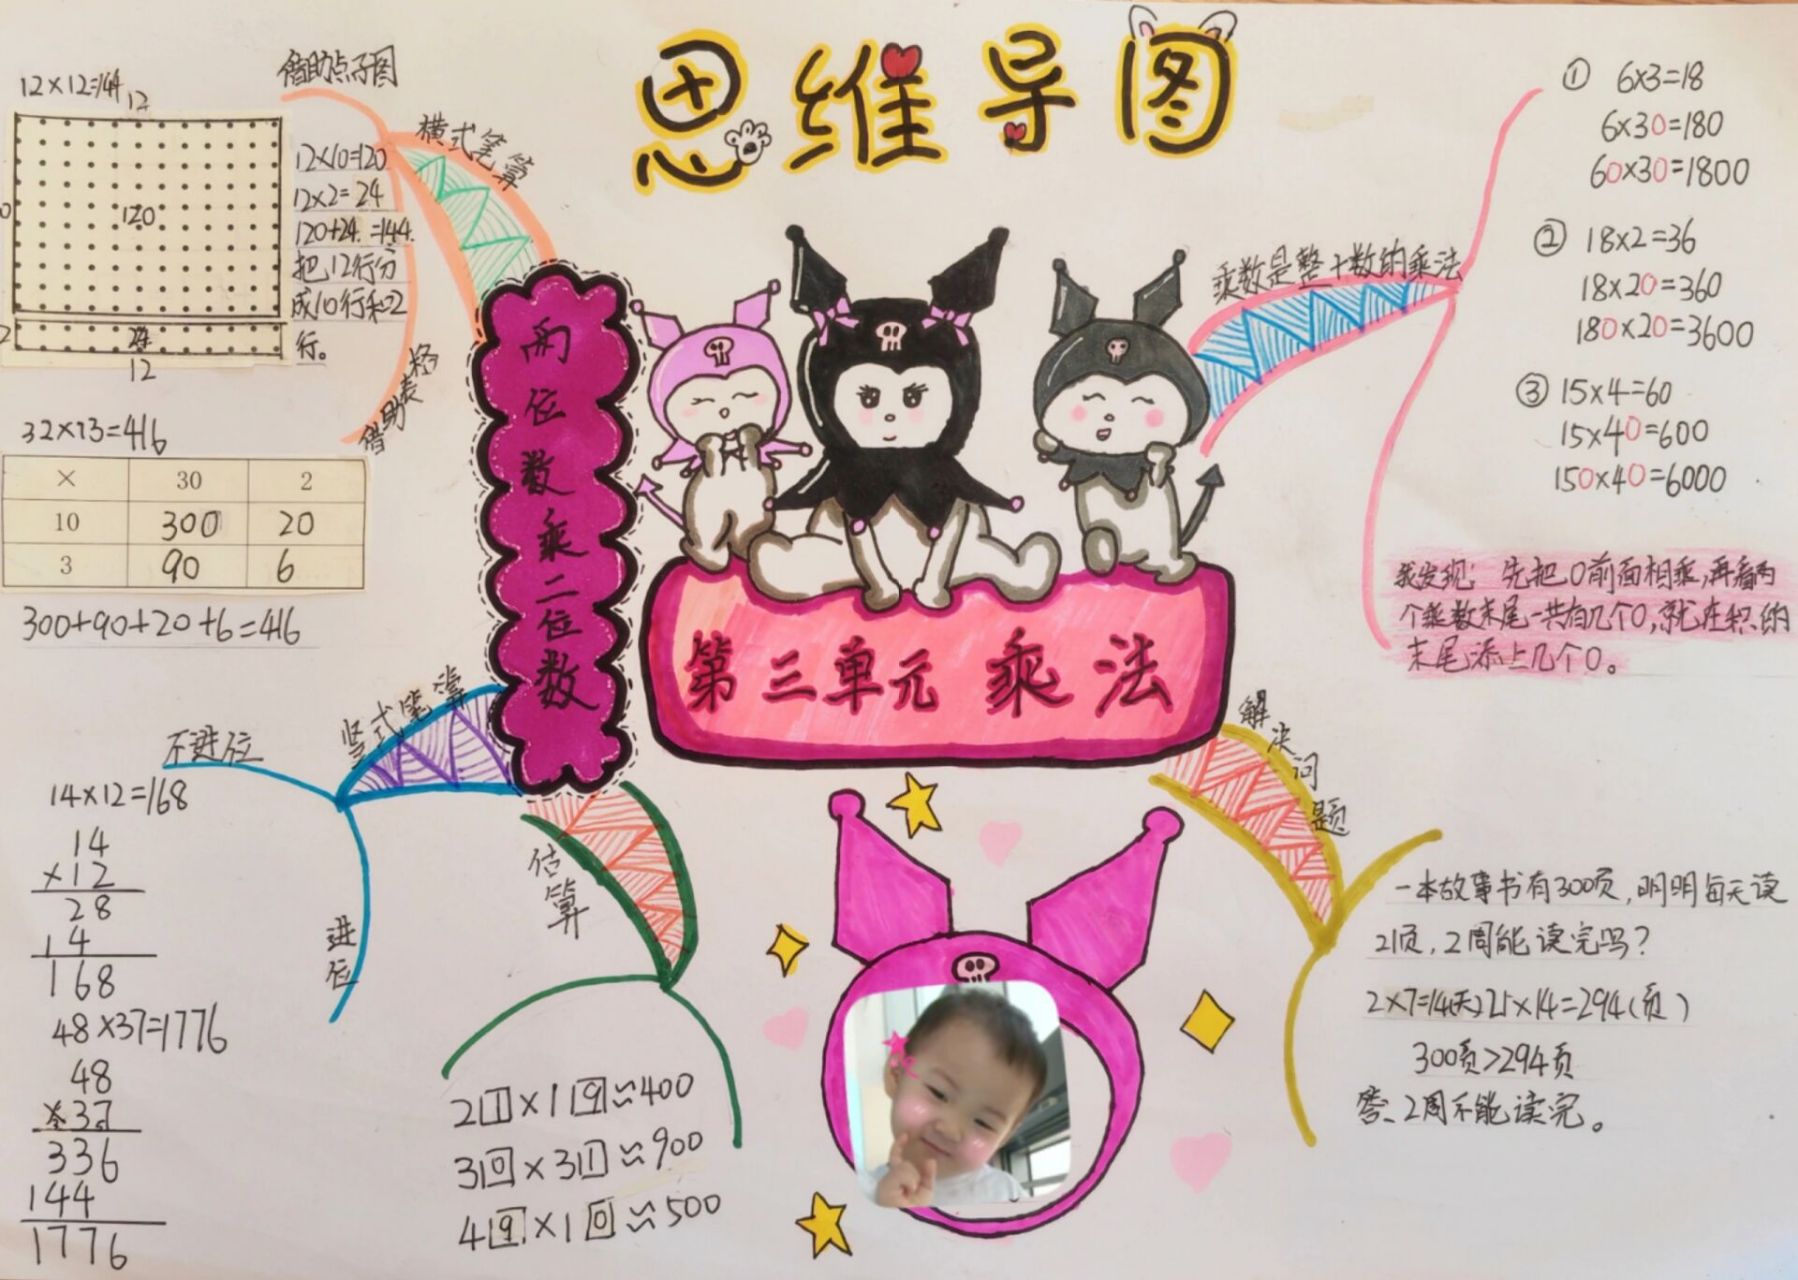 思维导图
借助点子图
12×12=144
12
120
24
12
12×10=120
12×2=24
120+24=144.
把12行分
成10行和2
行。
横式笔算
借助表格
32×13=416
× 30 2
10 300 20
3 90 6
300+90+20+6=416
两位数乘二位数
第三单元 乘法
竖式笔算
不进位
14×12=168
14
×12
28
14
168
进位
48×37=1776
48
×37
336
144
1776
估算
21×19≈400
30×31≈900
49×10≈500
乘数是整十数的乘法
① 6×3=18
6×30=180
60×30=1800
② 18×2=36
18×20=360
180×20=3600
③ 15×4=60
15×40=600
150×40=6000
我发现: 先把0前面相乘,再看两
个乘数末尾一共有几个0,就在积的
末尾添上几个0。
解决问题
一本故事书有300页,明明每天读
21页,2周能读完吗?
2×7=14(天) 21×14=294(页)
300页>294页
答:2周不能读完。